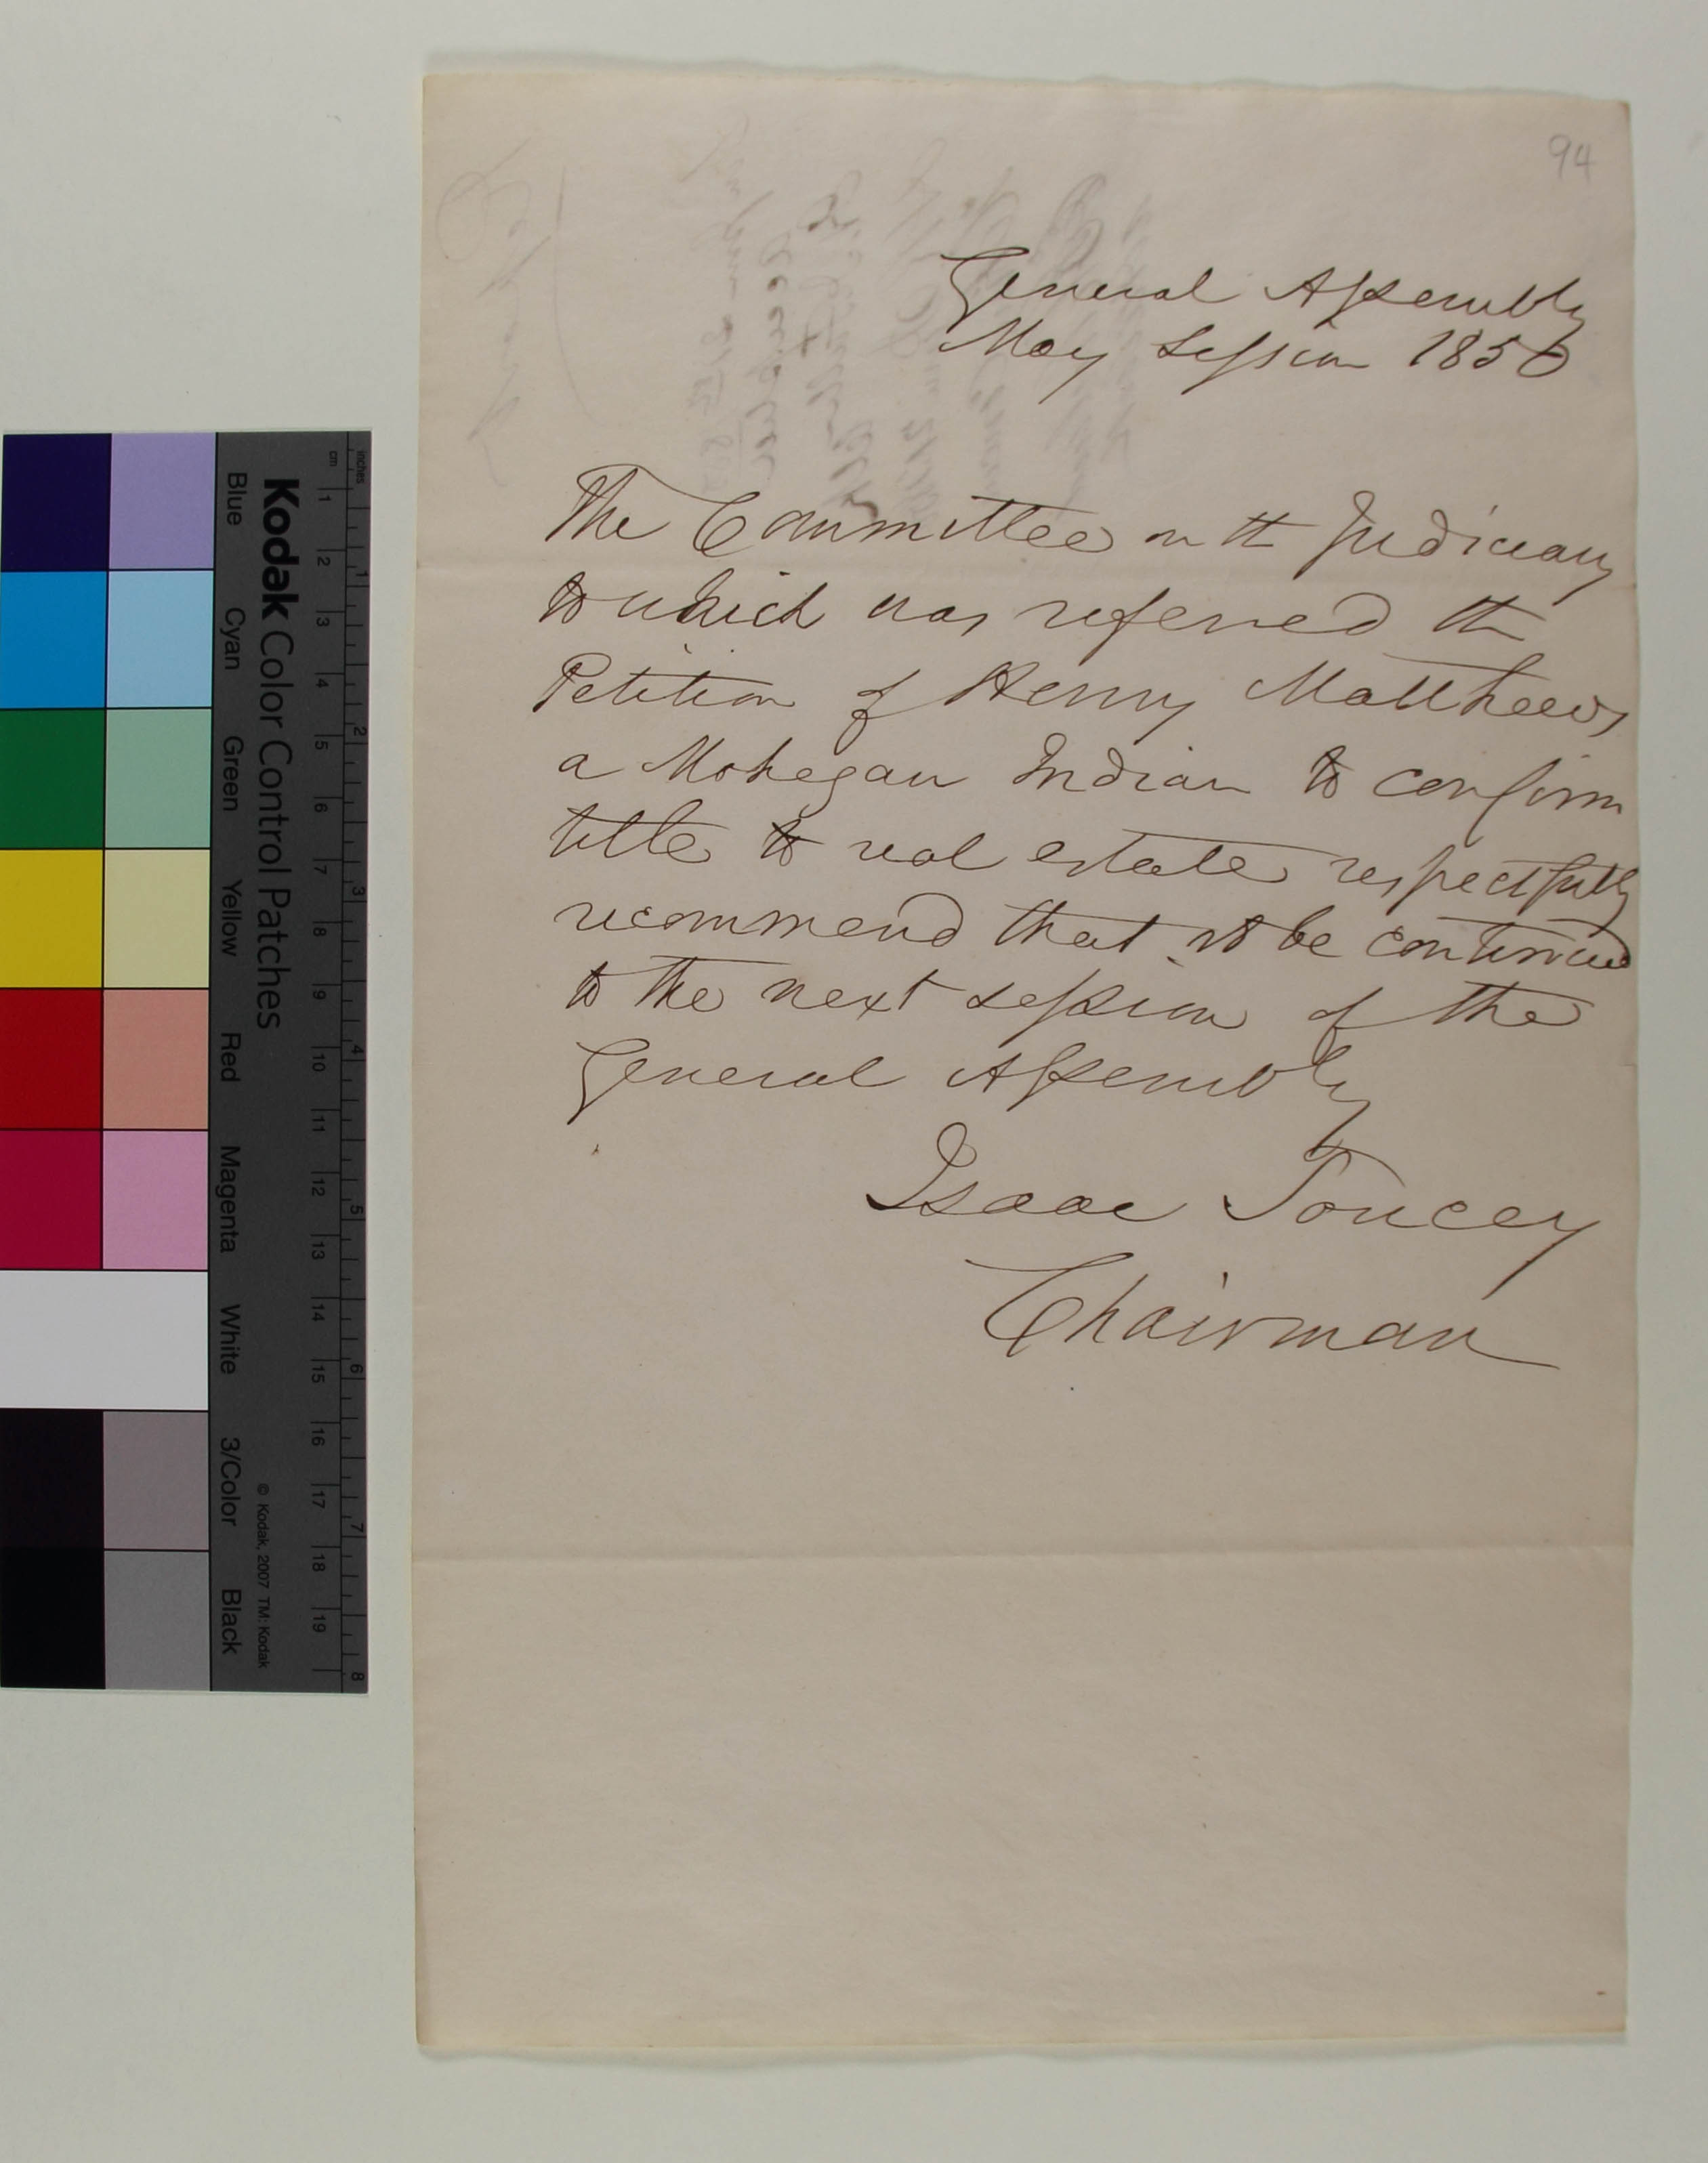 94
General Assembly
May Session 1850
The Committee on th Judiciary
to which was referred th
Petition of Henry Matthews
a Mohegan Indian to confirm
title to real estate respectfully
recommend that it be continued
to the next session of the
General Assembly
Isaac Toucey
Chairman
Kodak Color Control Patches
© Kodak, 2007 TM: Kodak
Blue Cyan Green Yellow Red Magenta White 3/Color Black
inches 1 2 3 4 5 6 7 8
cm 1 2 3 4 5 6 7 8 9 10 11 12 13 14 15 16 17 18 19